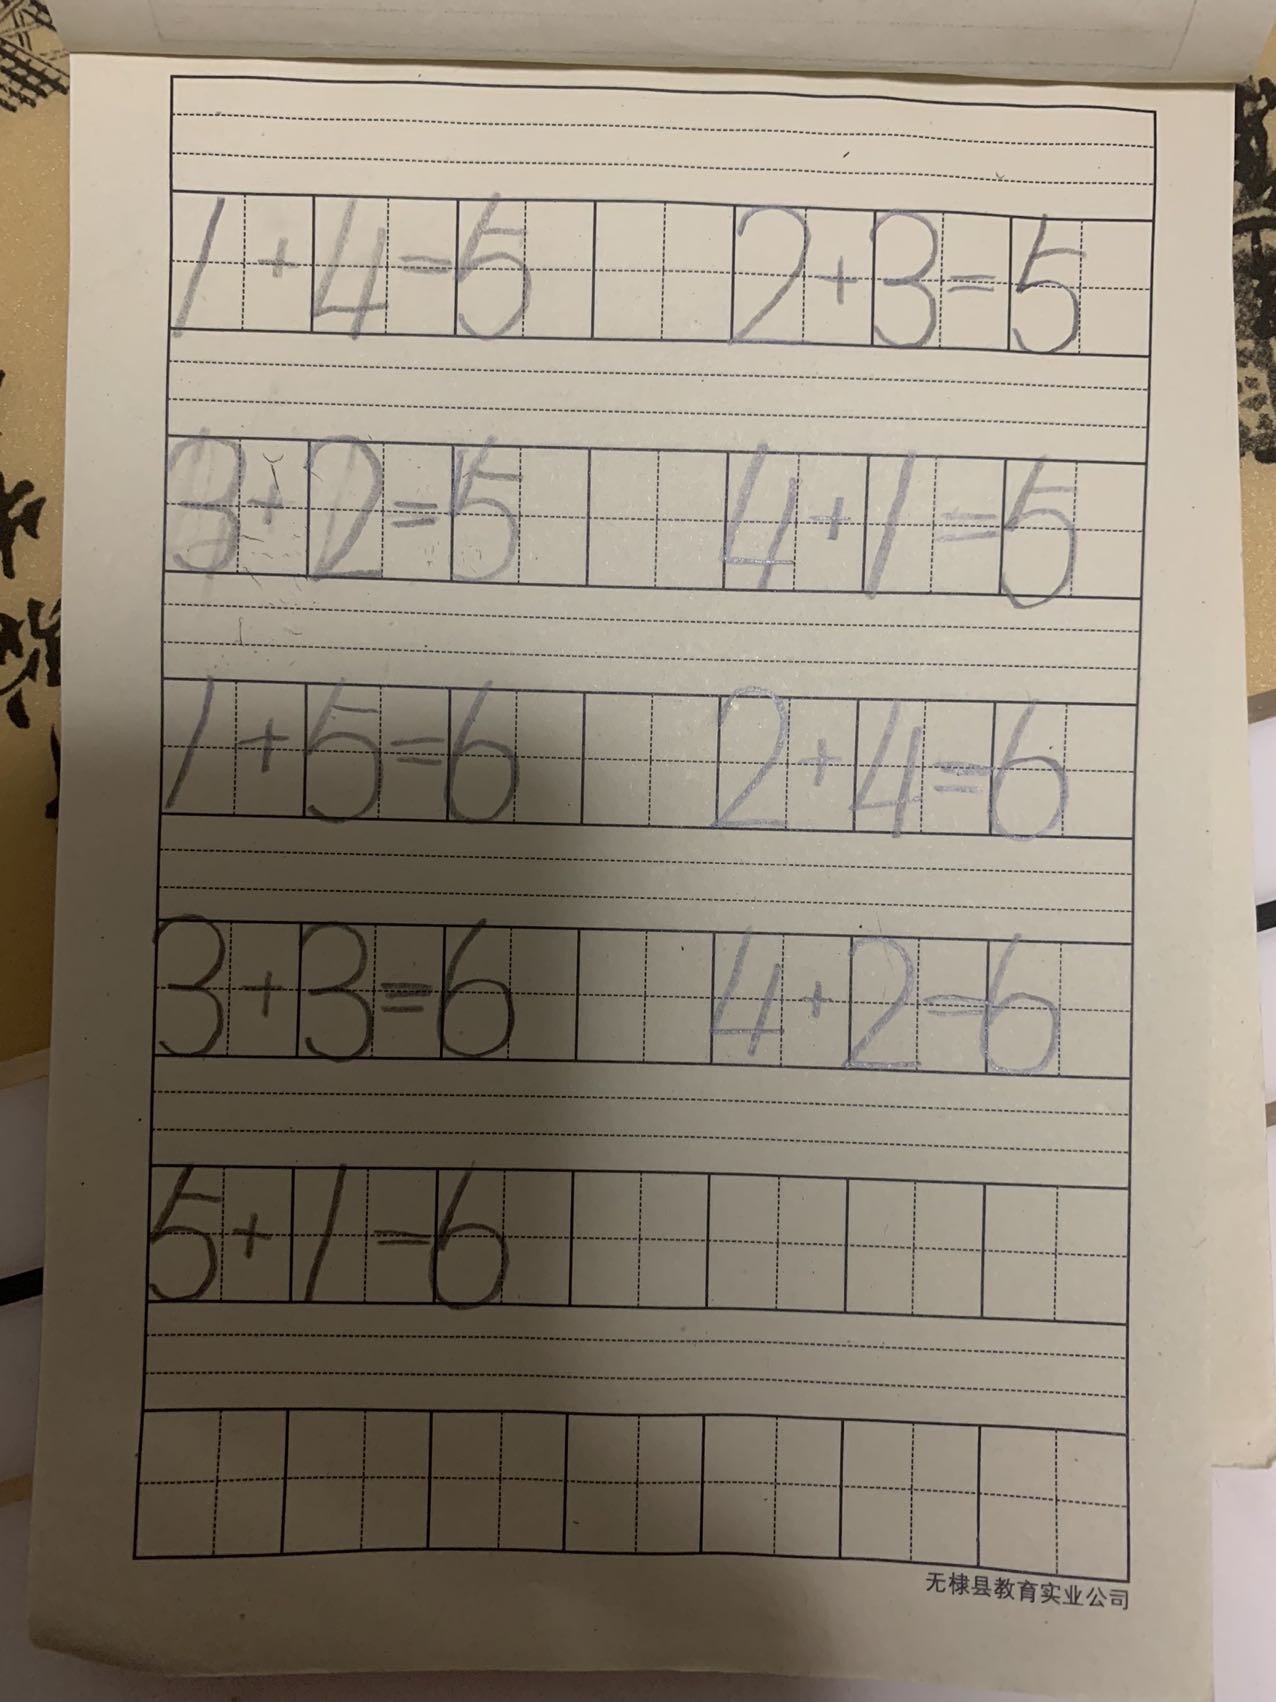 1+4=5 2+3=5
3+2=5 4+1=5
1+5=6 2+4=6
3+3=6 4+2=6
5+1=6
无棣县教育实业公司